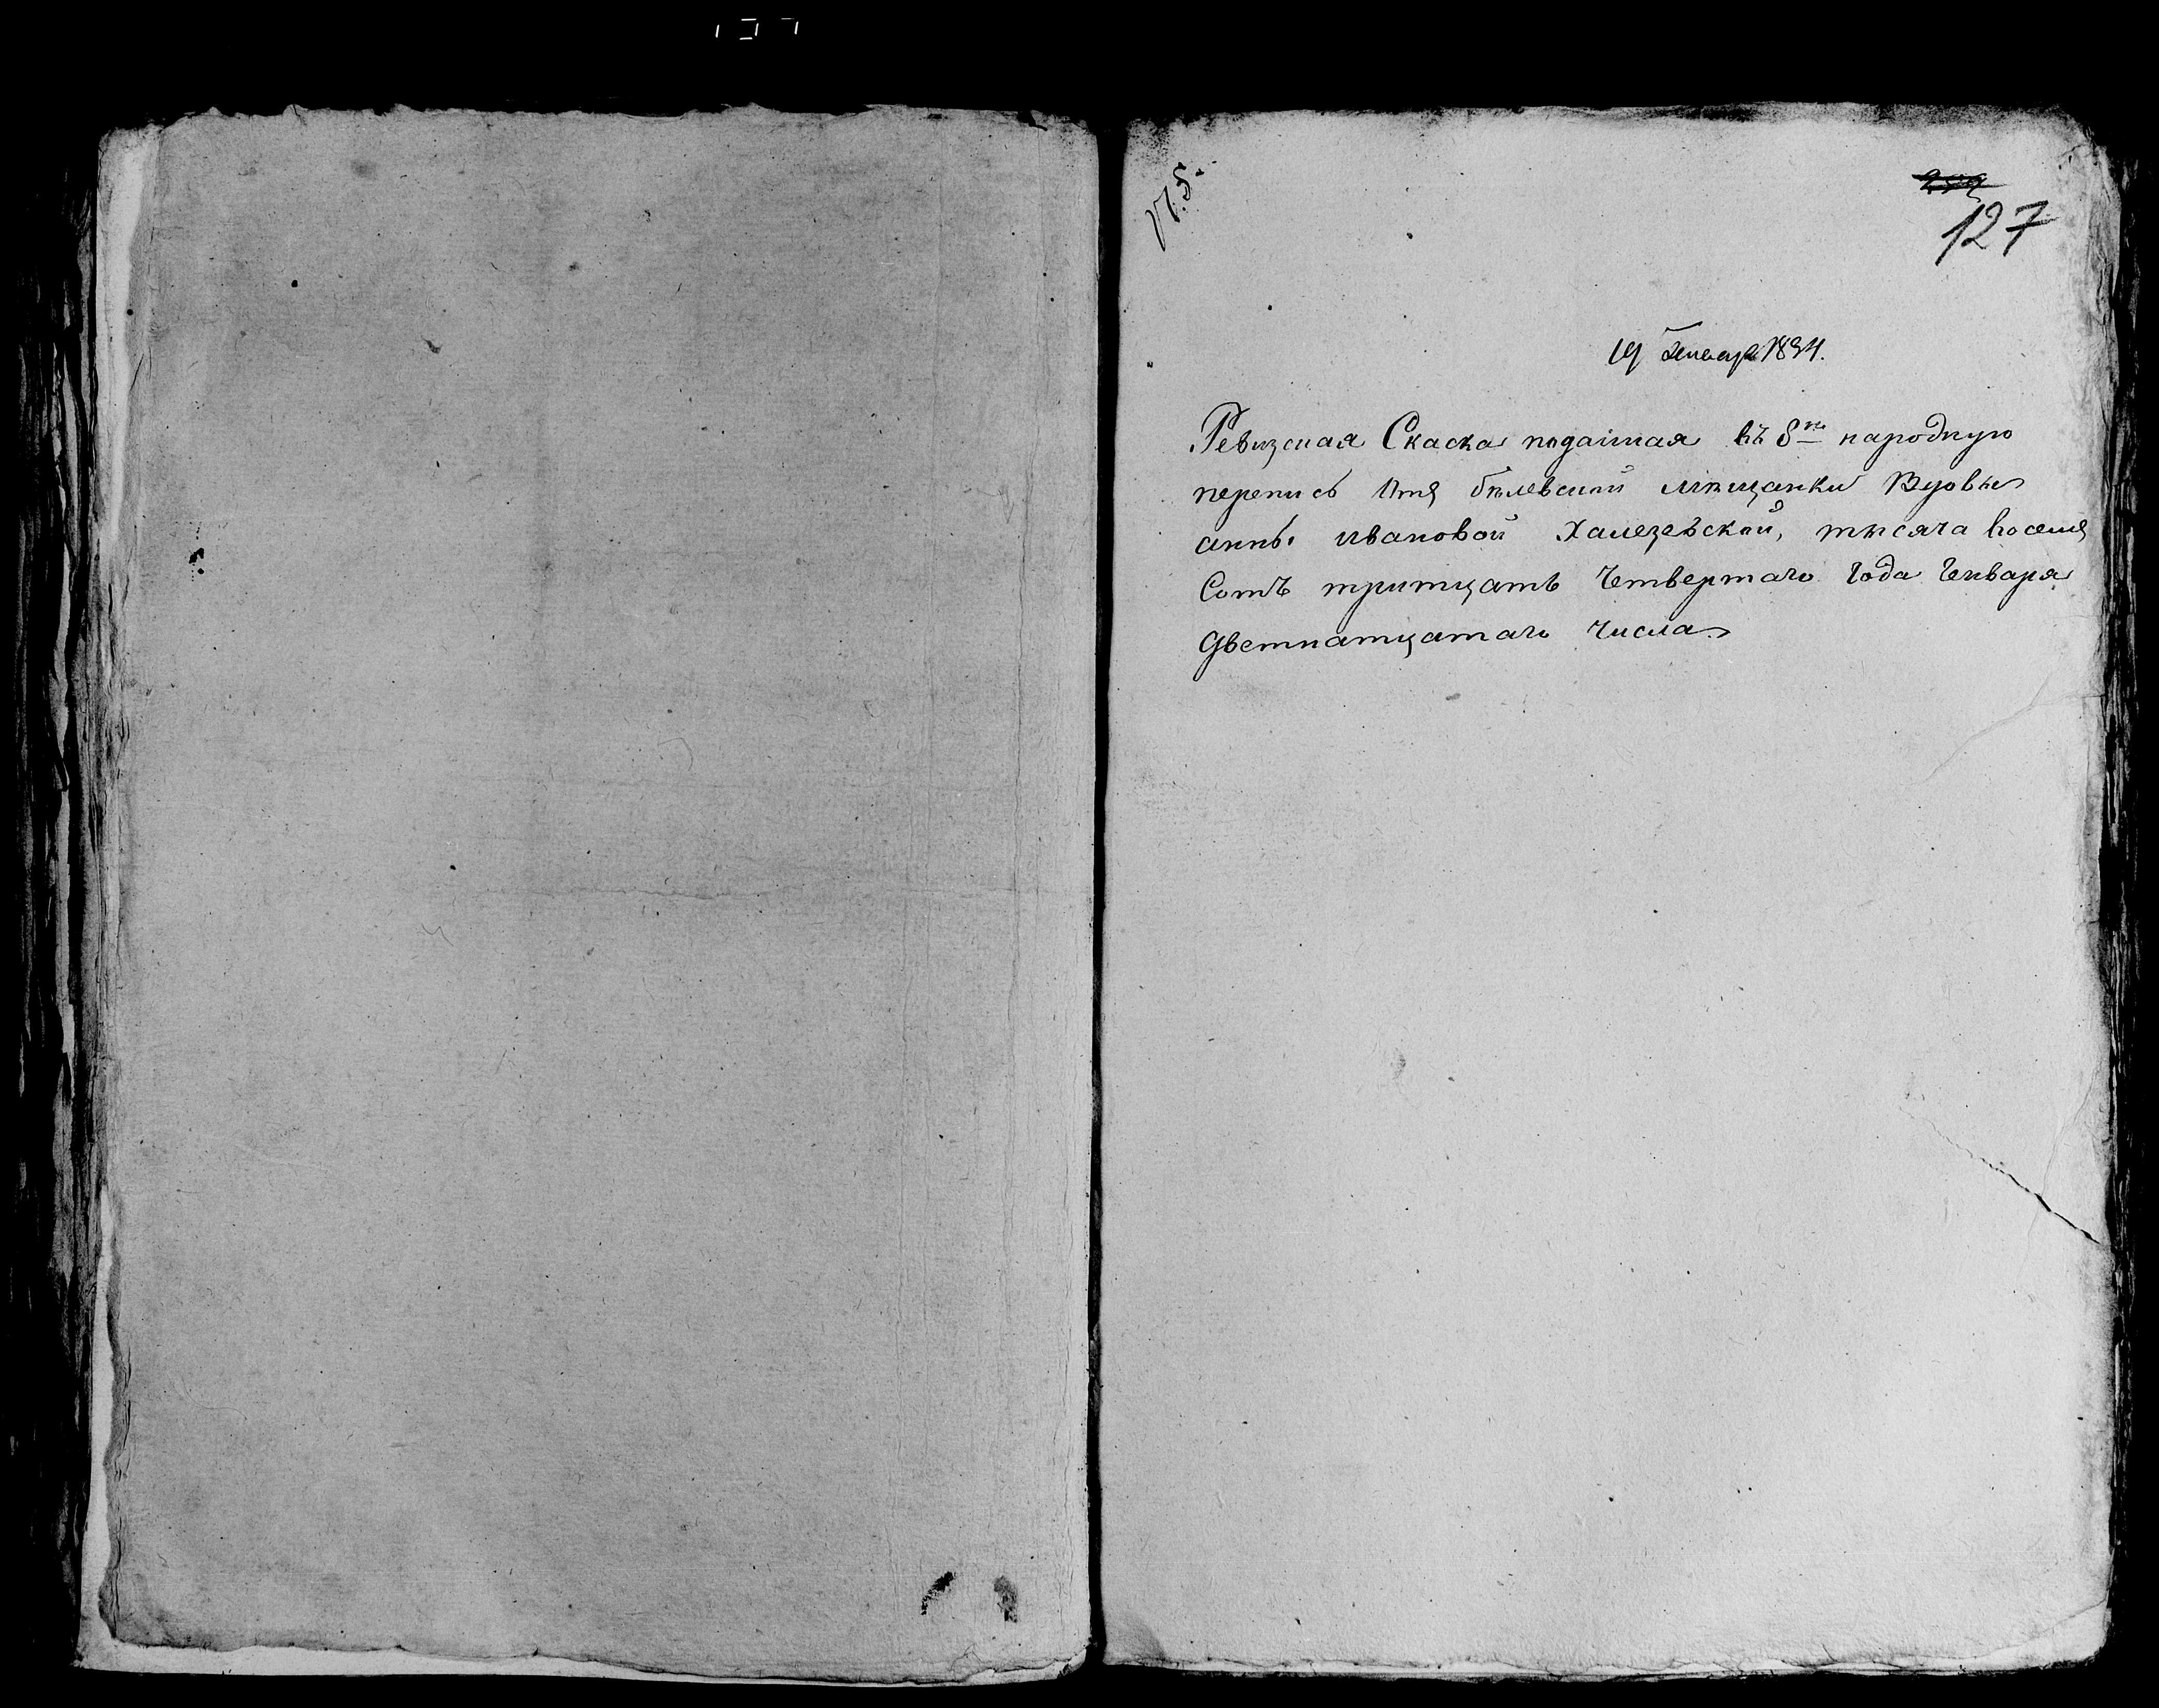 127
19 Генваря 1834.
Ревизская Скаска поданная въ 8ю народную
перепись Отъ белевской мещанки Вдовы
анны ивановой Халезевской, тысяча восемь
Сотъ тритцать Четвертаго Года Генваря
Деветнатцатаго Числа